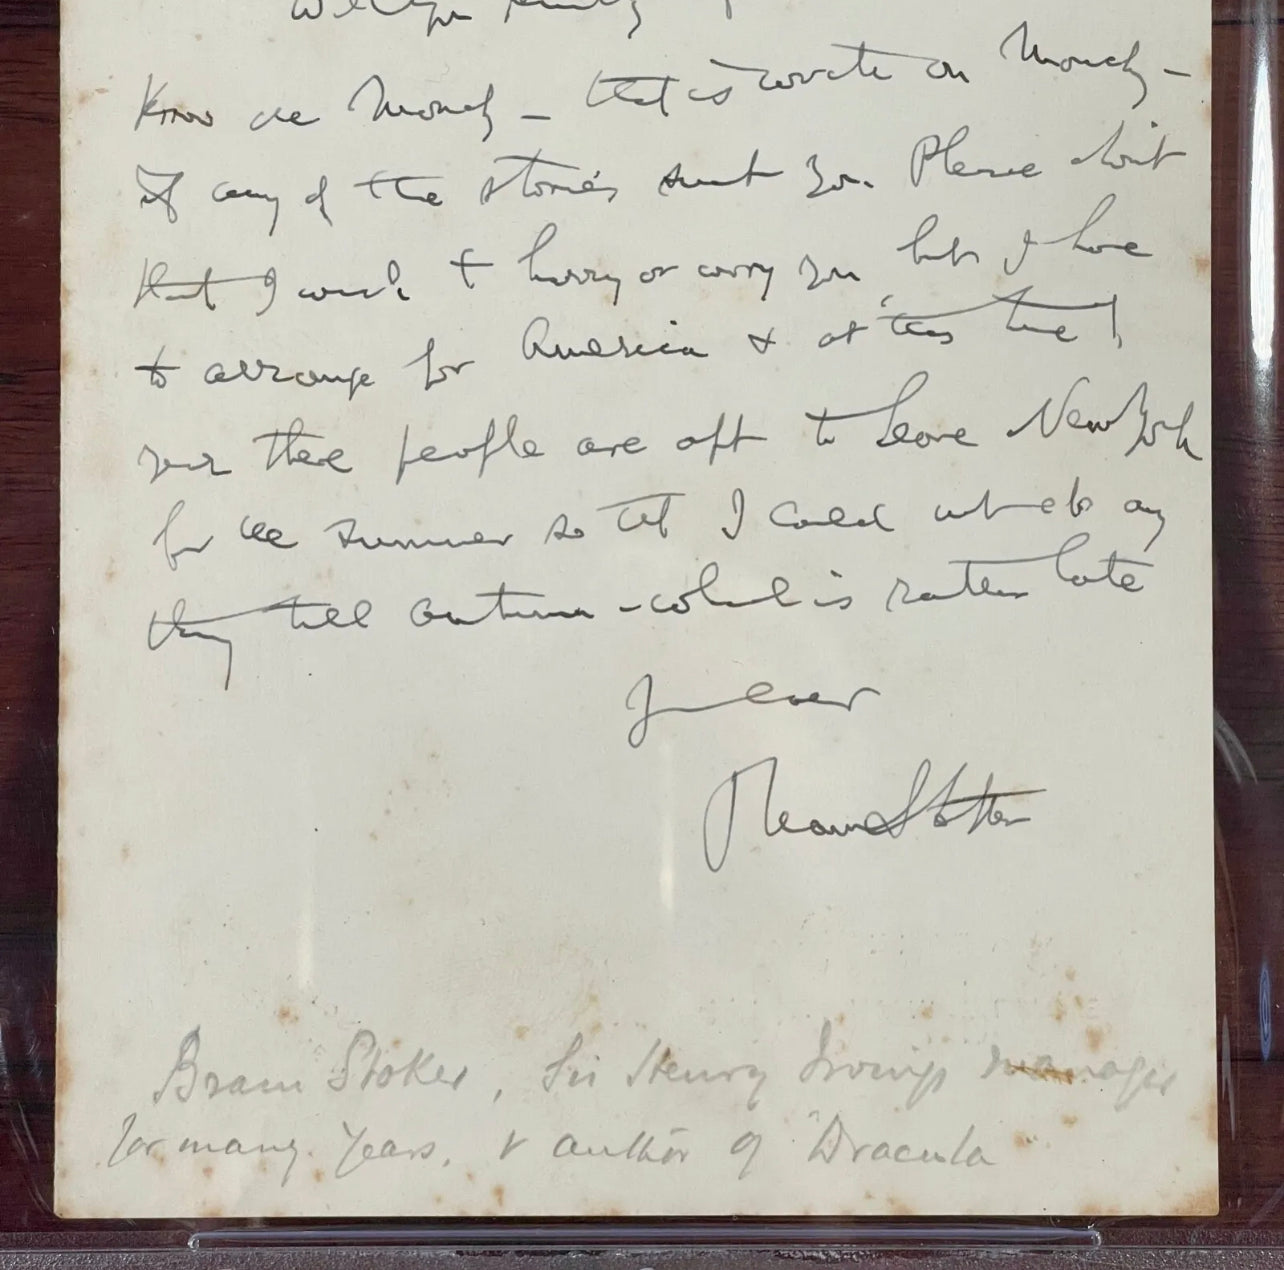 Will you kindly
Know on Monday – that is write on Monday –
if any of the stories suit you. Please don't
that I wish to hurry or worry you, but I have
to arrange for America & at this time of
year there people are apt to leave New York
for the summer so that I could not do any
thing till autumn – which is rather late
Yours ever
Bram Stoker
Bram Stoker, Sir Henry Irving's manager
for many years, & author of "Dracula"